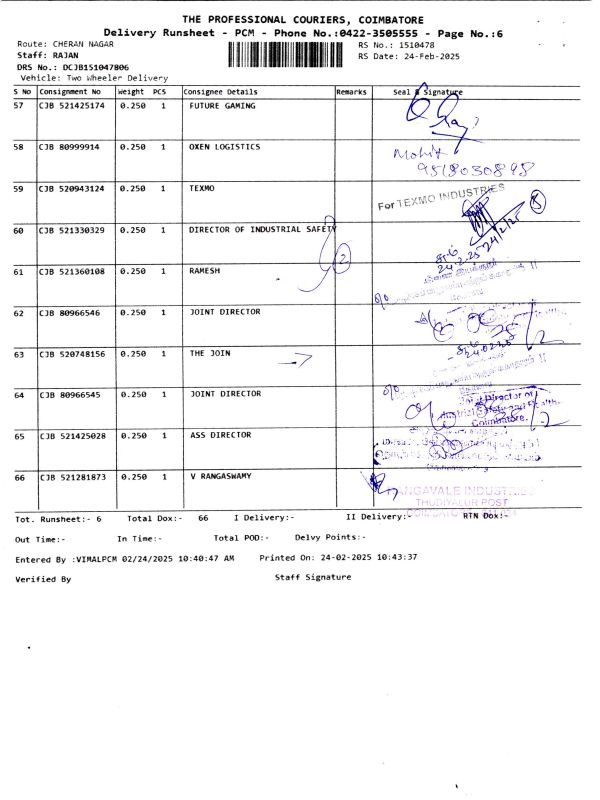 THE PROFESSIONAL COURIERS, COIMBATORE
Delivery Runsheet - PCM - Phone No.:0422-3505555 - Page No.:6
Route: CHERAN NAGAR
RS No.: 1510478
Staff: RAJAN
RS Date: 24-Feb-2025
DRS No.: DCJB151047806
Vehicle: Two Wheeler Delivery
S No Consignment No Weight PCS Consignee Details Remarks Seal & Signature
57 CJB 521425174 0.250 1 FUTURE GAMING
58 CJB 80999914 0.250 1 OXEN LOGISTICS
Mohit
9518030898
59 CJB 520943124 0.250 1 TEXMO
For TEXMO INDUSTRIES
24/2/25
60 CJB 521330329 0.250 1 DIRECTOR OF INDUSTRIAL SAFETY
2
24.2.25
61 CJB 521360108 0.250 1 RAMESH
62 CJB 80966546 0.250 1 JOINT DIRECTOR
63 CJB 520748156 0.250 1 THE JOIN
64 CJB 80966545 0.250 1 JOINT DIRECTOR
Joint Director of
Industrial Safety and Health
Coimbatore.
65 CJB 521425028 0.250 1 ASS DIRECTOR
66 CJB 521281873 0.250 1 V RANGASWAMY
RANGAVALE INDUSTRIES
THUDIYALUR POST
Tot. Runsheet:- 6 Total Dox:- 66 I Delivery:- II Delivery:- RTN Dox:-
Out Time:- In Time:- Total POD:- Delvy Points:-
Entered By :VIMALPCM 02/24/2025 10:40:47 AM Printed On: 24-02-2025 10:43:37
Verified By Staff Signature